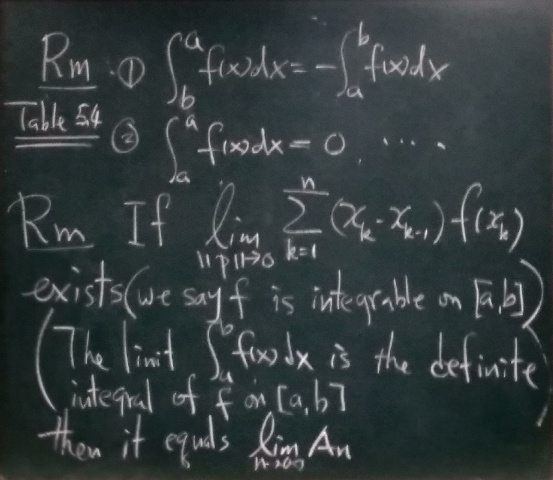 Rm ① ∫_b^a f(x)dx = -∫_a^b f(x)dx
Table 5.4
② ∫_a^a f(x)dx = 0, ....
Rm If lim_{||p||→0} Σ_{k=1}^n (x_k - x_{k-1}) f(x_k)
exists (we say f is integrable on [a,b])
(The limit ∫_a^b f(x)dx is the definite
integral of f on [a,b]
then it equals lim_{n→∞} An